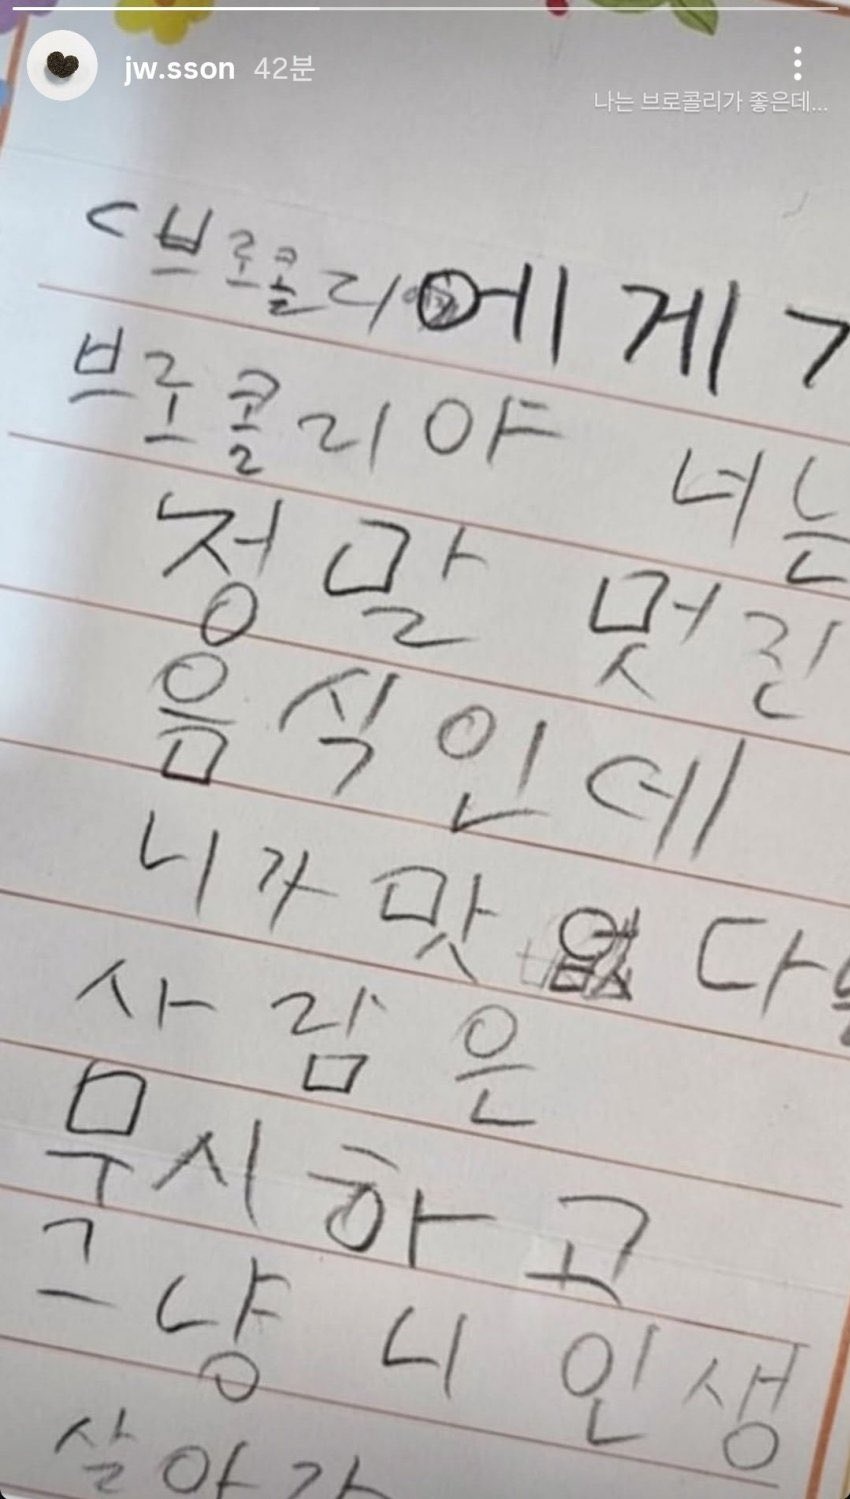 jw.sson 42분
나는 브로콜리가 좋은데...
<브로콜리에게
브로콜리야 너는
정말 멋진
음식인데
니가맛없다
사람은
무시하고
그냥 니 인생
살아가